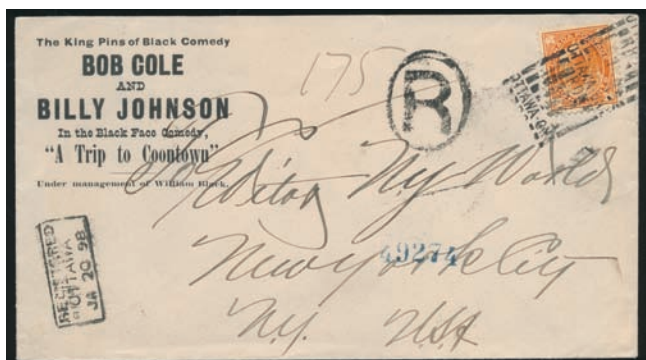 The King Pins of Black Comedy
BOB COLE
AND
BILLY JOHNSON
In the Black Face Comedy,
"A Trip to Coontown"
Under management of William Black.
175
R
OTTAWA
To Editor N.Y. World
49274
New York City
N.Y. USA
REGISTERED
OTTAWA
JA 20 98